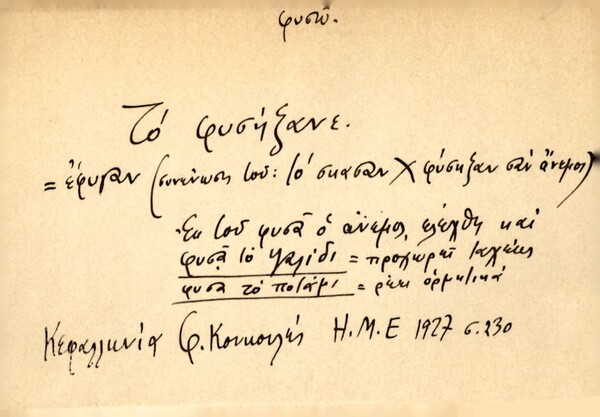 φυσῶ.
Τό φυσήξανε.
= ἔφυγαν (συνένωσις τοῦ: τό σκασαν χ φύσηξαν σαν ἄνεμος)
Ἐκ τοῦ φυσᾶ ὁ ἄνεμος, ἐλέχθη καὶ
φυσᾶ τό ψαλίδι = προχωρεῖ ταχέως
φυσᾶ τό ποτάμι = ρέει ὁρμητικά
Κεφαλληνία Φ. Κουκουλές Η.Μ.Ε 1927 σ.230